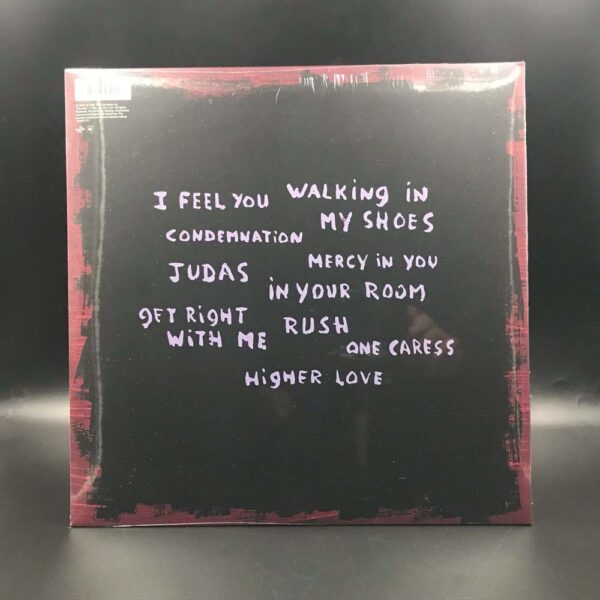 I FEEL YOU
WALKING iN
MY SHOES
CONDEMNATiON
MERCY iN YOU
JUDAS
iN YOUR ROOM
gET RigHT
WiTH ME
RUSH
ONE CARESS
HigHER LOVE